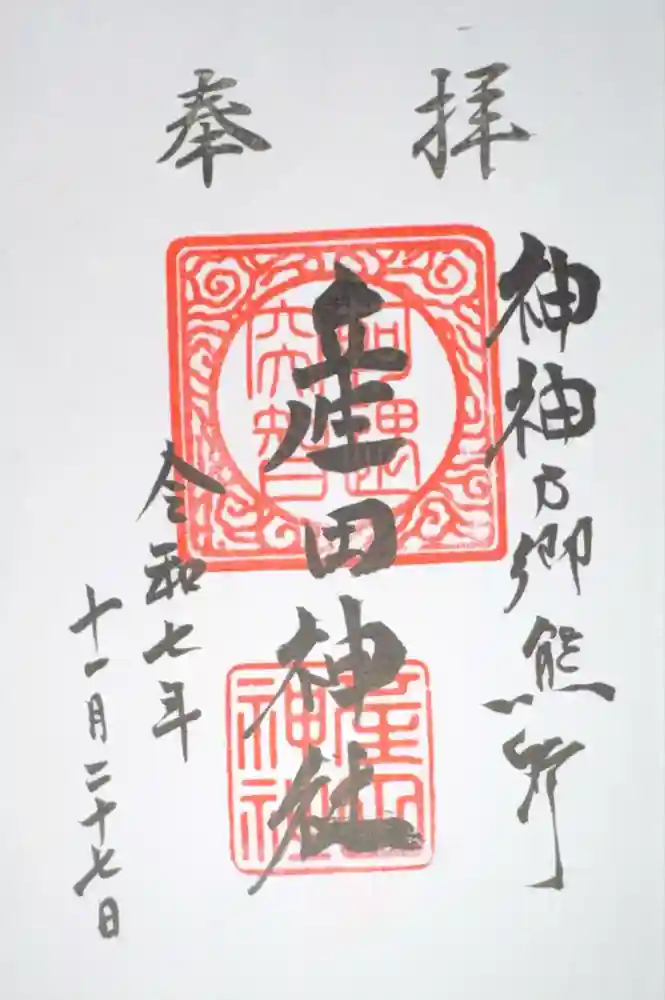 奉拝
神神乃郷熊野
産田神社
産田神社
令和七年
十一月二十七日